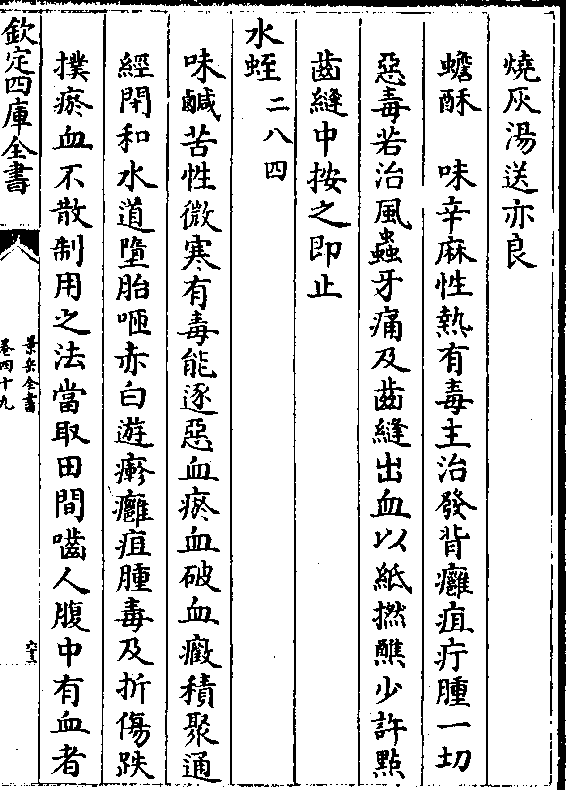 燒灰湯送亦良
蟾酥　味辛麻性熱有毒主治發背癰疽疔腫一切
惡毒若治風蟲牙痛及齒縫出血以紙撚蘸少許點
齒縫中按之即止
水蛭二八四
味鹹苦性微寒有毒能逐惡血瘀血破血癥積聚通
經閉和水道墮胎咂赤白遊瘮癰疽腫毒及折傷跌
撲瘀血不散制用之法當取田間嚙人腹中有血者
欽定四庫全書
景岳全書
卷四十九